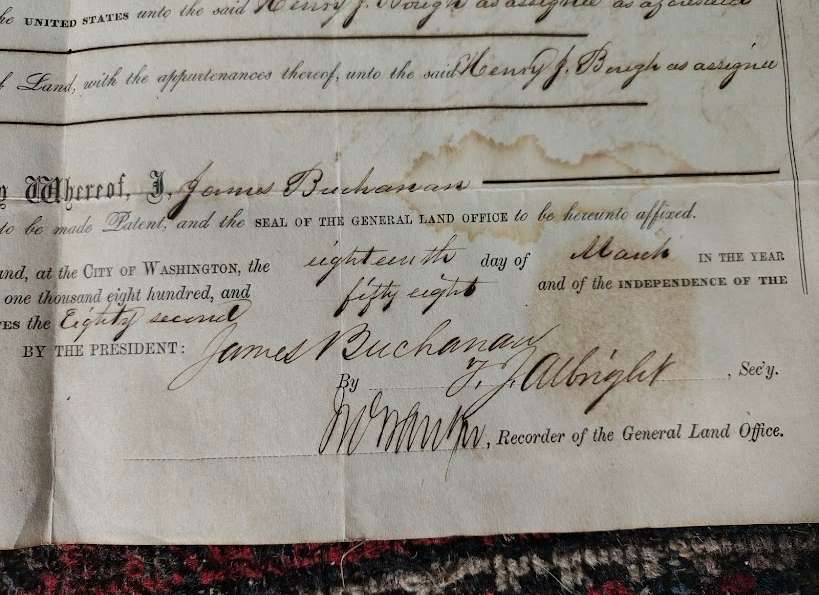 he UNITED STATES unto the said Henry J. Bough as assignee as aforesaid
of Land, with the appurtenances thereof, unto the said Henry J. Bough as assignee
Whereof, I, James Buchanan
to be made Patent, and the SEAL OF THE GENERAL LAND OFFICE to be hereunto affixed.
and, at the CITY OF WASHINGTON, the eighteenth day of March IN THE YEAR
one thousand eight hundred, and fifty eight and of the INDEPENDENCE OF THE
ES the Eighty second
BY THE PRESIDENT: James Buchanan
By T. J. Albright, Sec'y.
, Recorder of the General Land Office.